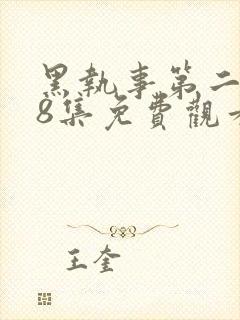 黑執事第二
8集免費觀
王奎